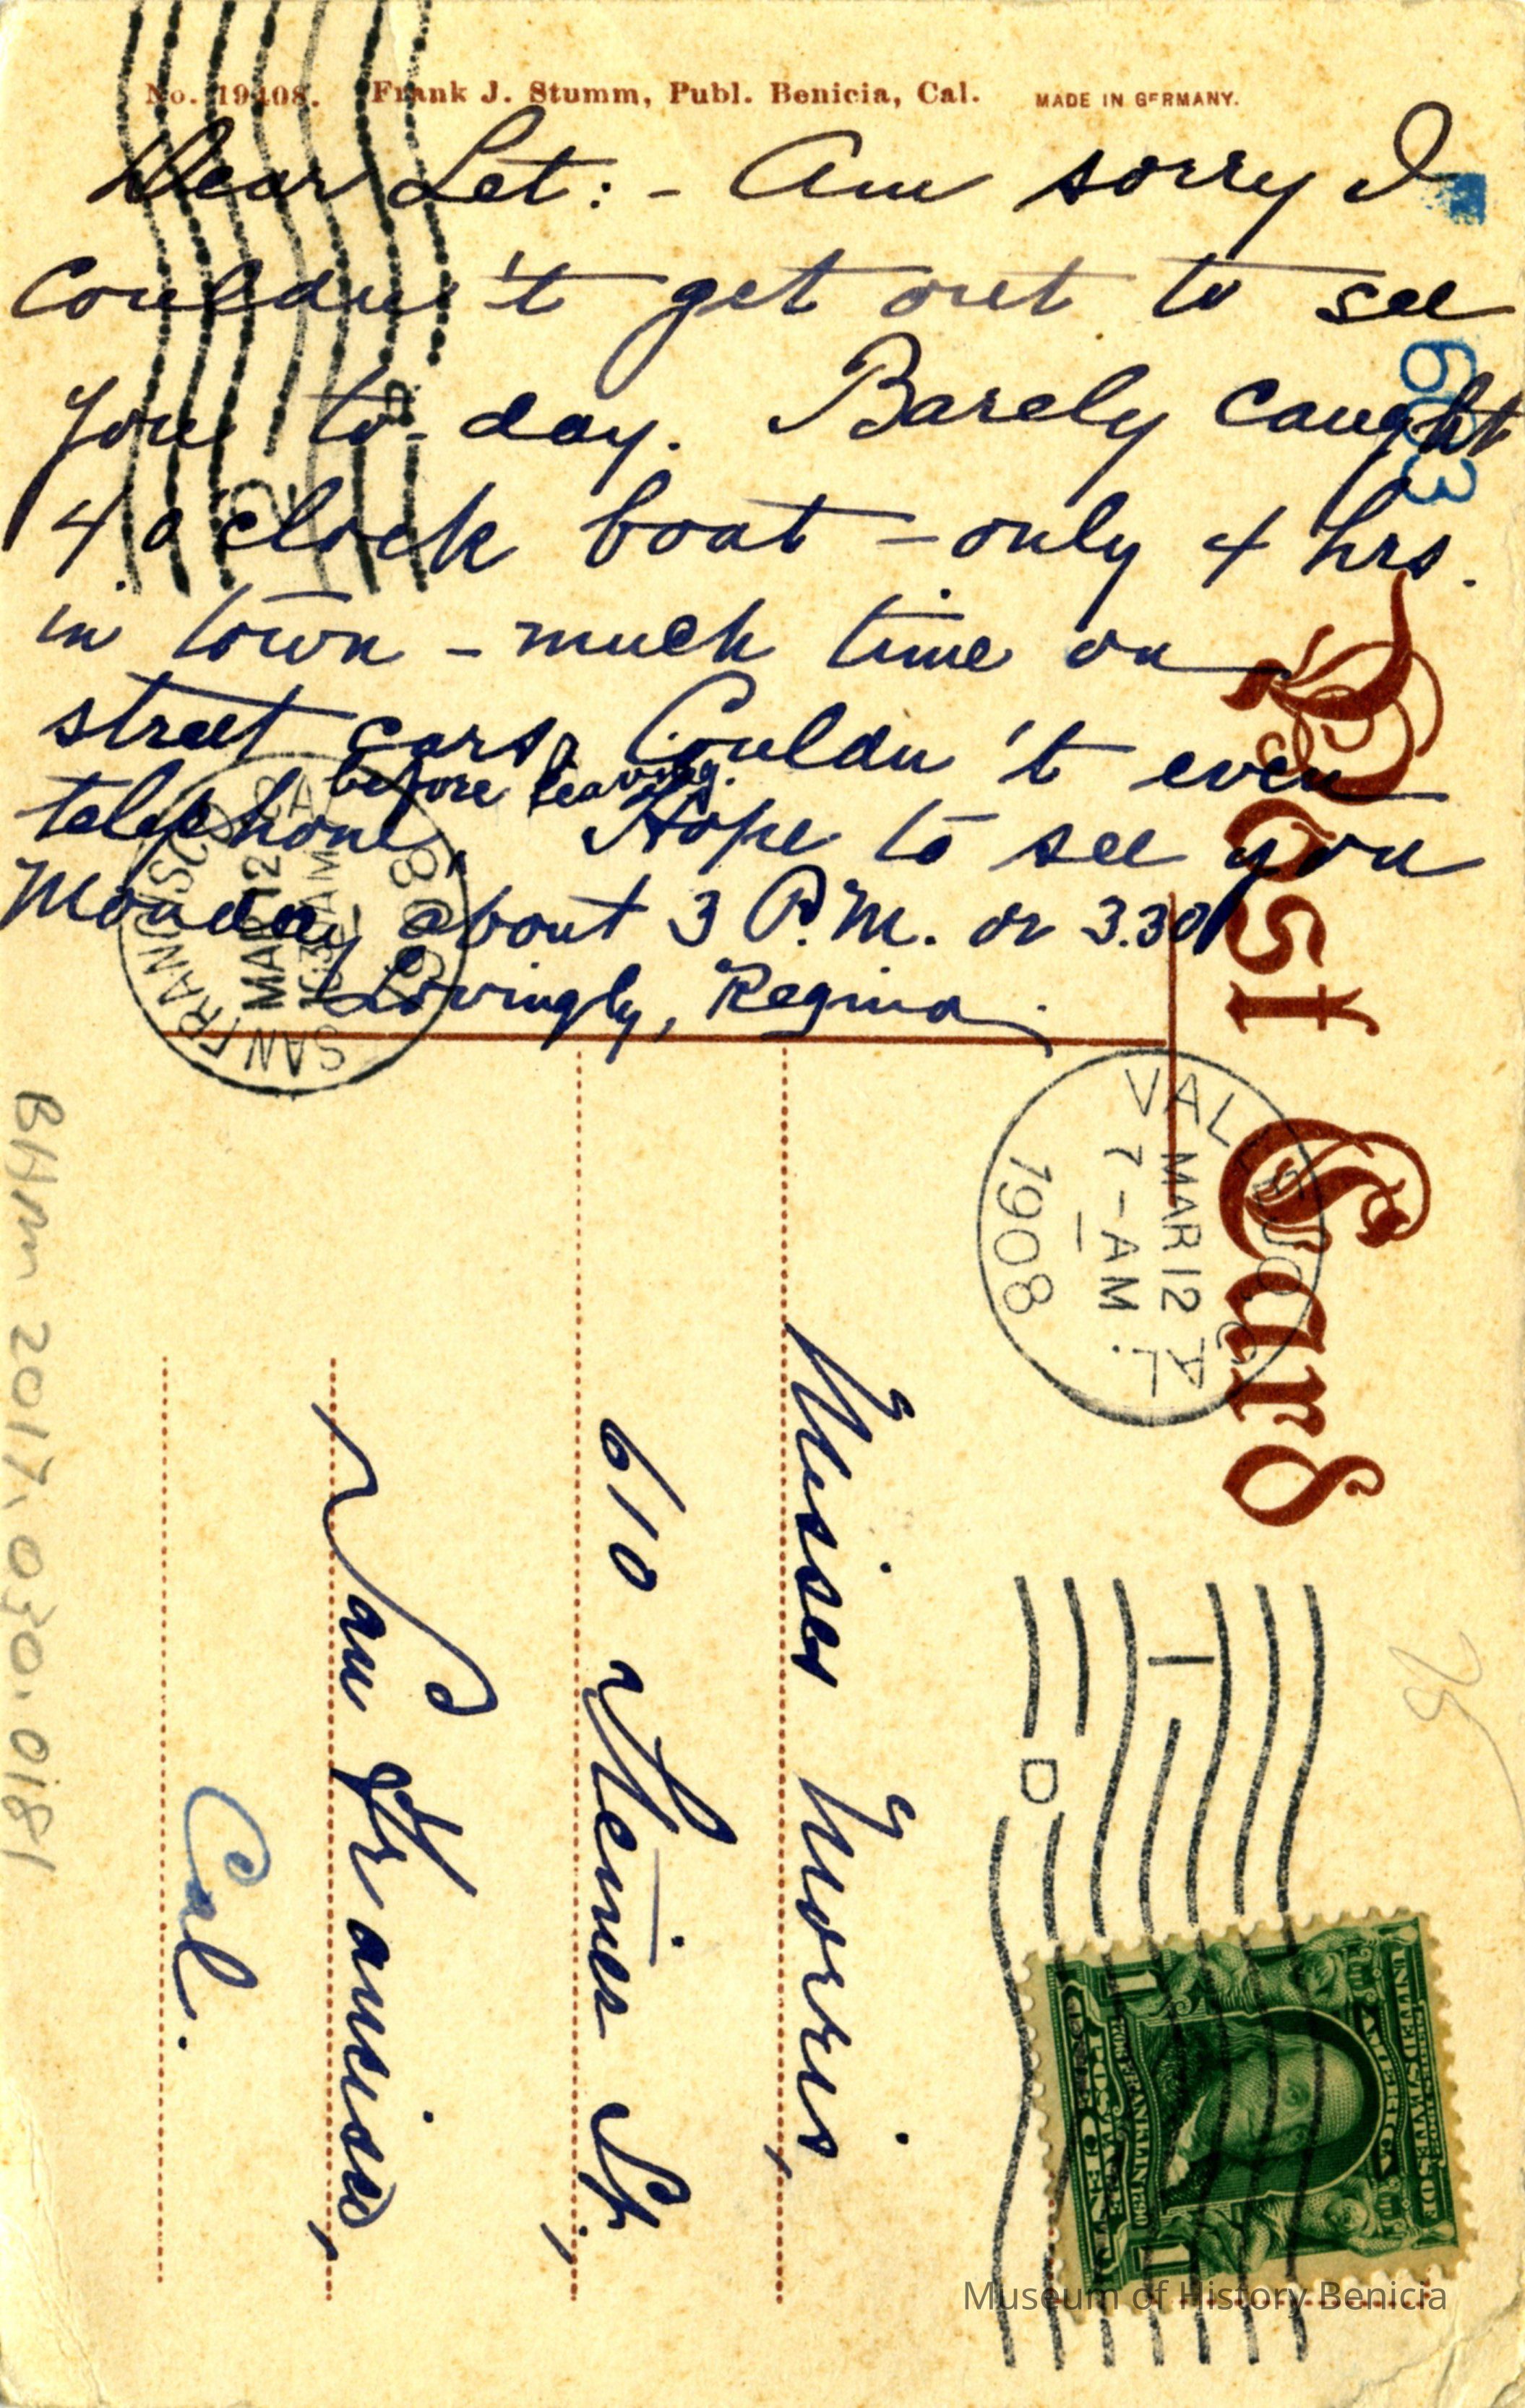 No. 19408. Frank J. Stumm, Publ. Benicia, Cal. MADE IN GERMANY.
Dear Let: - Am sorry I
couldn't get out to see
you to-day. Barely caught
4 o'clock boat - only 4 hrs.
in town - much time on
street cars. Couldn't even
before leaving.
telephone. Hope to see you
Monday about 3 P.M. or 3.30
Lovingly, Regina.
Post Card
603
SAN FRANCISCO, CAL.
MAR 12
10:30 AM
1908
VALLEJO, CAL.
MAR 12
7-AM
1908
D
Misses Morris,
610 Steiner St,
San Francisco,
Cal.
BHM 2017.030.0181
UNITED STATES OF AMERICA
ONE CENT
1
1
Museum of History Benicia